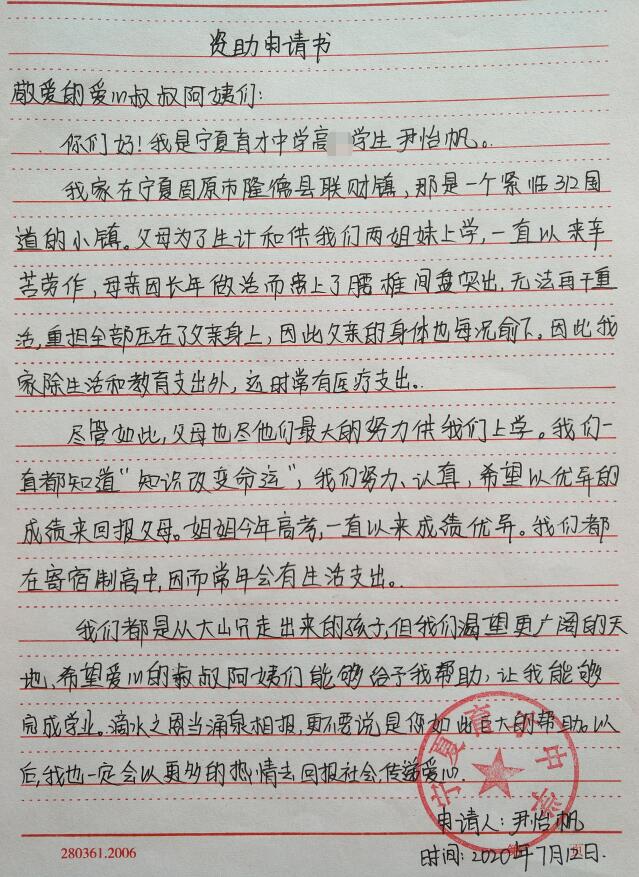 资助申请书
敬爱的爱心叔叔阿姨们:
你们好!我是宁夏育才中学高 学生尹怡帆。
我家在宁夏固原市隆德县联财镇,那是一个紧临312国
道的小镇。父母为了生计和供我们两姐妹上学,一直以来车
苦劳作,母亲因长年做活而患上了腰椎间盘突出,无法再干重
活,重担全部压在了父亲身上,因此父亲的身体也每况俞下。因此我
家除生活和教育支出外,还时常有医疗支出。
尽管如此,父母也尽他们最大的努力供我们上学。我们一
直都知道“知识改变命运”,我们努力、认真,希望以优异的
成绩来回报父母。姐姐今年高考,一直以来成绩优异。我们都
在寄宿制高中,因而常年会有生活支出。
我们都是从大山里走出来的孩子,但我们渴望更广阔的天
地、希望爱心的叔叔阿姨们能够给予我帮助,让我能够
完成学业。滴水之恩当涌泉相报,更不要说是你如此巨大的帮助。以
后,我也一定会以更多的热情去回报社会,传递爱心.
宁夏育才中学
申请人:尹怡帆
时间:2020年7月12日.
280361.2006